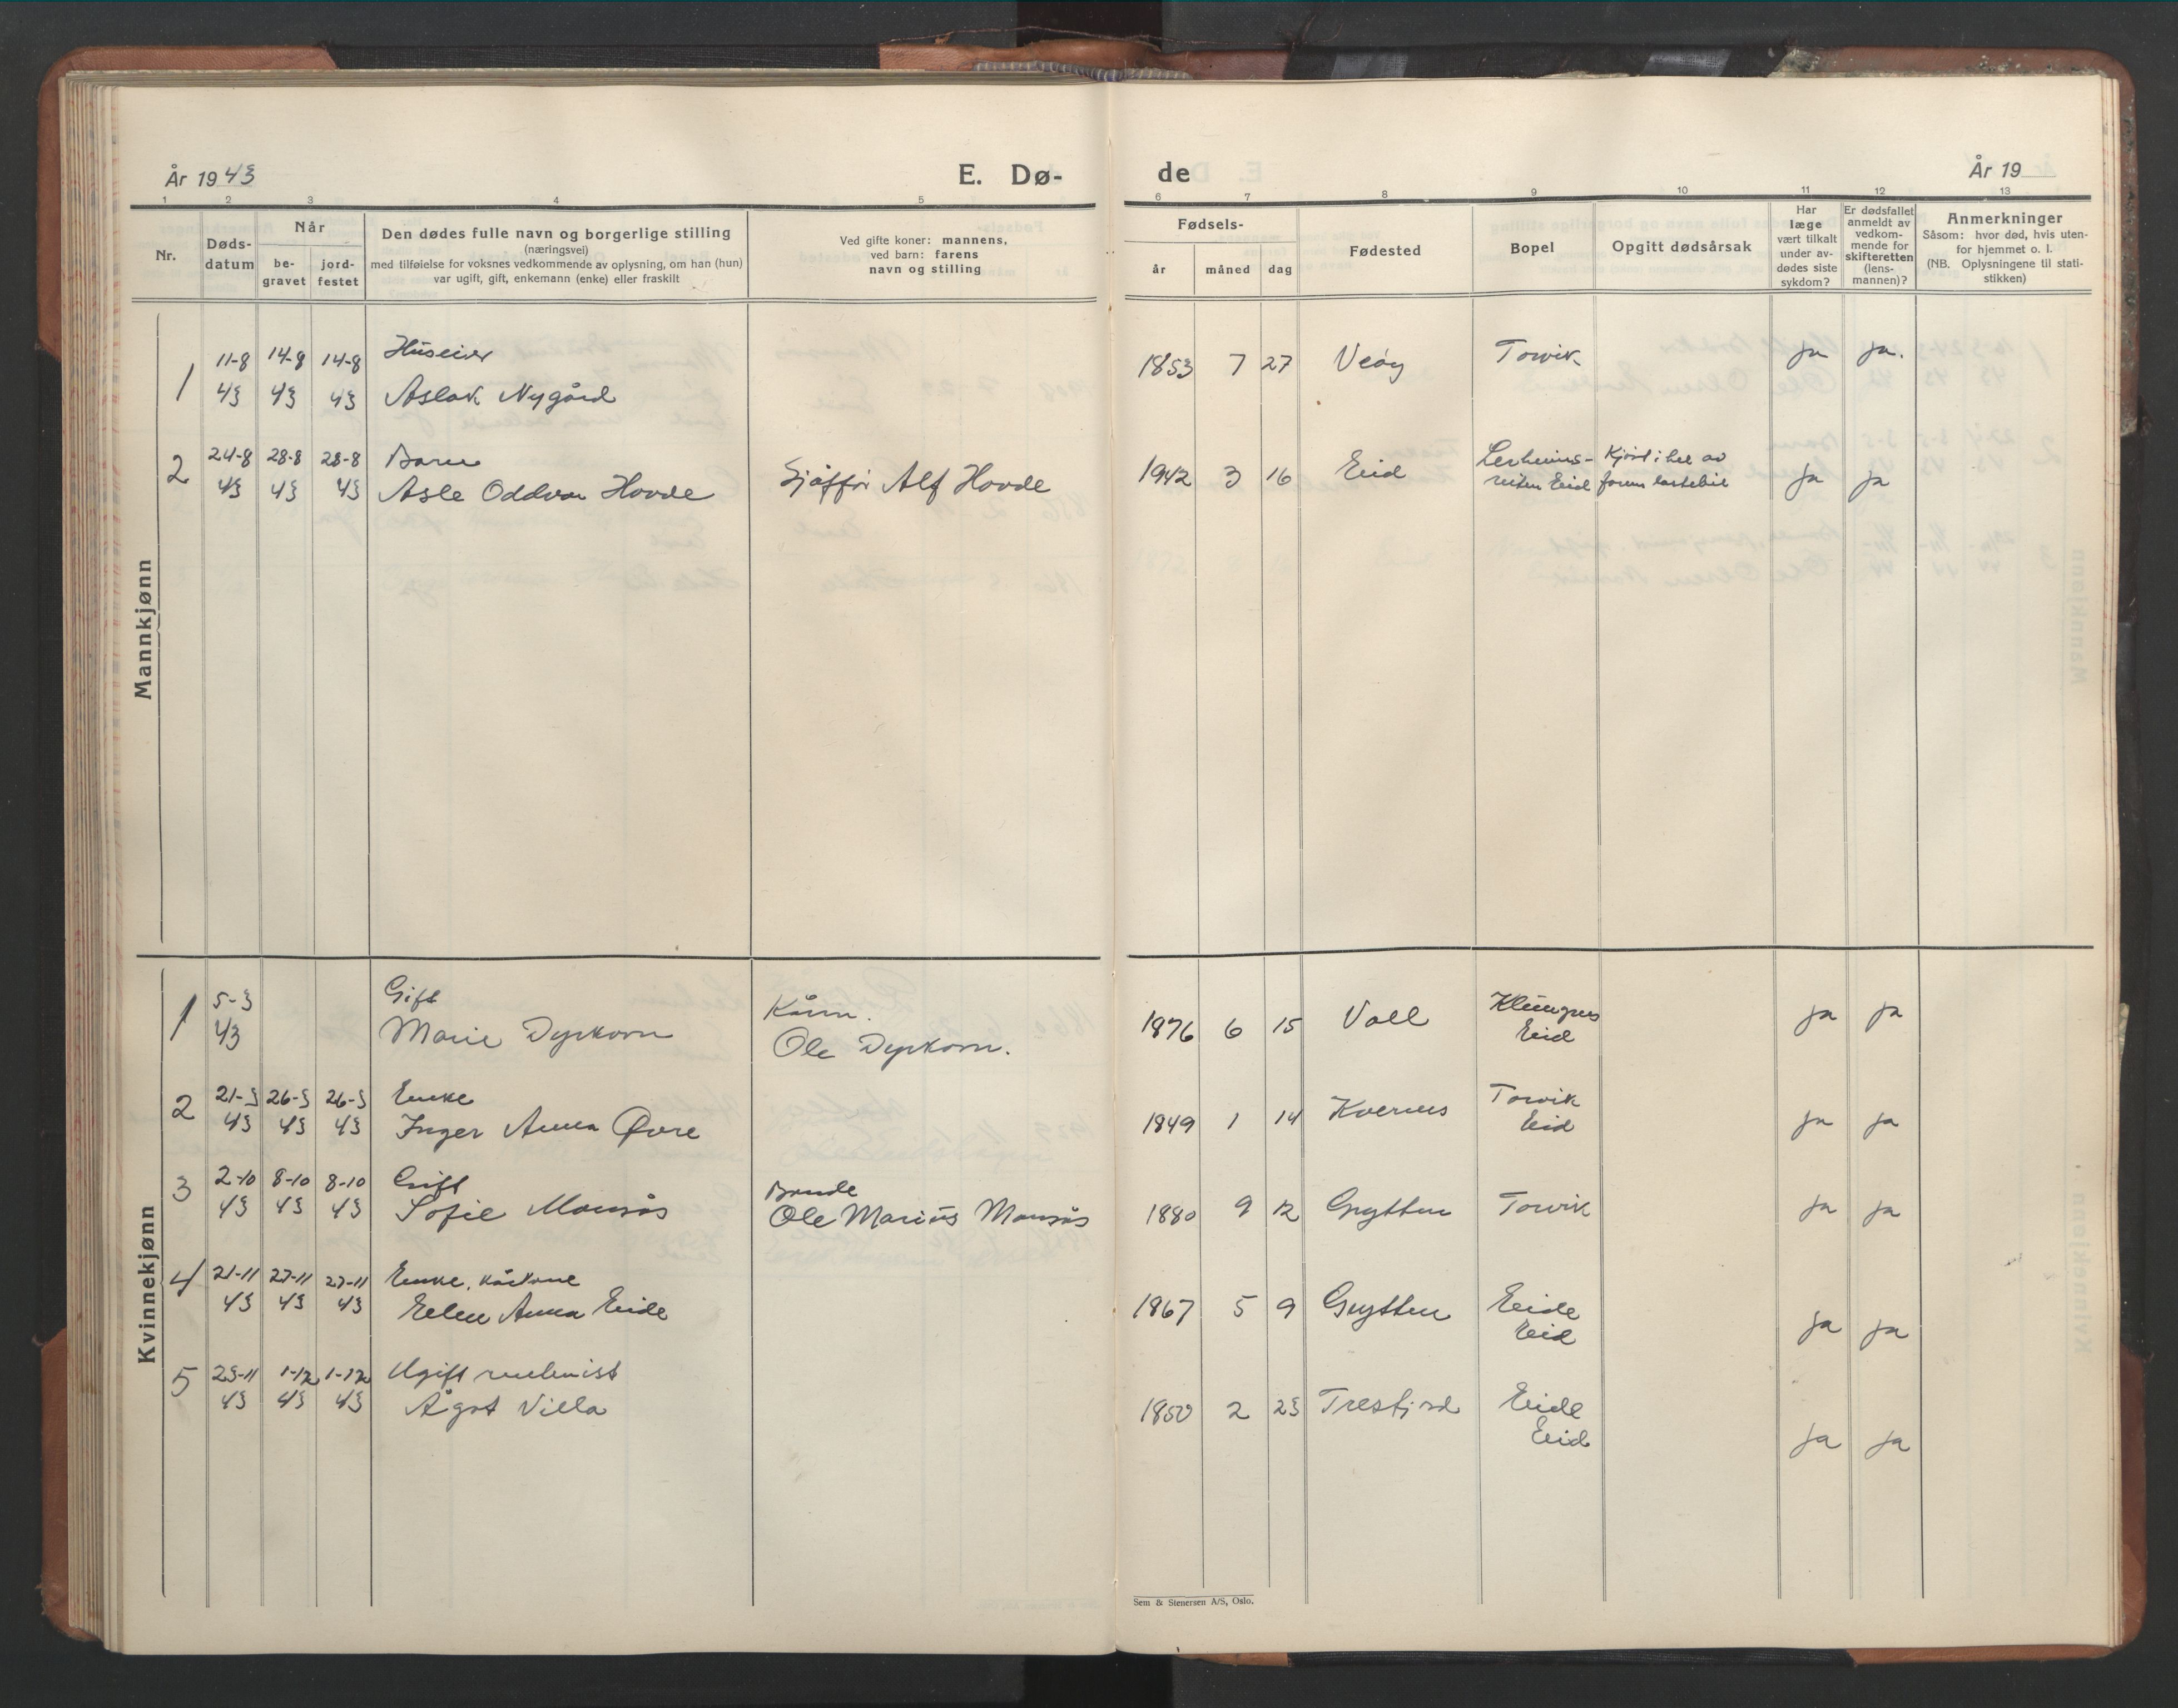 År 1943
E. Dø-
1 2 3 4 5
Nr.
Døds-
datum
Når
be-
gravet
jord-
festet
Den dødes fulle navn og borgerlige stilling
(næringsvei)
med tilføielse for voksnes vedkommende av oplysning, om han (hun)
var ugift, gift, enkemann (enke) eller fraskilt
Ved gifte koner: mannens,
ved barn: farens
navn og stilling
de
År 19
6 7 8 9 10 11 12 13
Fødsels-
år måned dag
Fødested
Bopel
Opgitt dødsårsak
Har
læge
vært tilkalt
under av-
dødes siste
sykdom?
Er dødsfallet
anmeldt av
vedkom-
mende for
skifteretten
(lens-
mannen)?
Anmerkninger
Såsom: hvor død, hvis uten-
for hjemmet o. l.
(NB. Oplysningene til stati-
stikken)
Mannkjønn
1 11-8 14-8 14-8 Huseier 1853 7 27 Veøy Torvik ja ja.
43 43 43 Aslak Nygård
2 24-8 28-8 28-8 Barn Kjørt i hel av
43 43 43 Asle Oddvar Hovde Sjåffør Alf Hovde 1942 3 16 Eid Eid lastebil ja ja
Kvinnekjønn
1 5-3 Gift
43 Marie Dyrkorn Ole Dyrkorn. 1876 6 15 Voll Klungnes ja ja
Eid
2 21-3 26-3 26-3 Enke Torvik
43 43 43 Inger Anna Øvre 1849 1 14 Kvernes Eid ja ja
3 2-10 8-10 8-10 Gift Bonde
43 43 43 Sofie Monsås Ole Marius Monsås 1880 9 12 Grytten Torvik ja ja
4 21-11 27-11 27-11 Enke, kårkone
43 43 43 Ellen Anna Eide 1867 5 9 Grytten Eide
Eid ja ja
5 23-11 1-12 1-12 Ugift
43 43 43 Ågot Villa 1850 2 23 Tresfjord Eide
Eid ja ja
Sem & Stenersen A/S, Oslo.